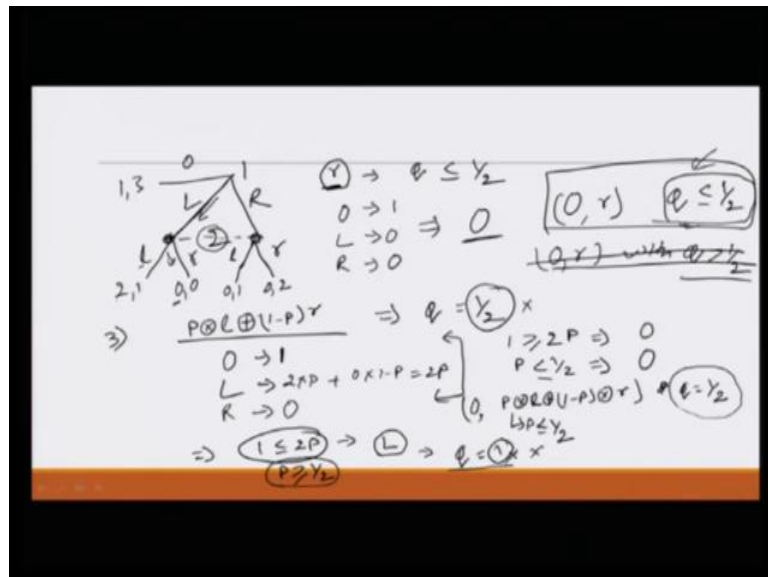 0 1
1,3 L R
l 2 l r
2,1 0,0 0,1 0,2
r → q ≤ 1/2
0 → 1
L → 0 ⇒ 0
R → 0
(0, r) q ≤ 1/2
(0, r) with q > 1/2
3) p⊗l⊕(1-p)r ⇒ q = 1/2 ×
0 → 1
L → 2×p + 0×1-p = 2p
R → 0
1 ≥ 2p ⇒ 0
p ≤ 1/2 ⇒ 0
(0, p⊗l⊕(1-p)⊗r) q = 1/2
↳ p ≤ 1/2
⇒ 1 ≤ 2p → L → q = 1 × ×
p ≥ 1/2